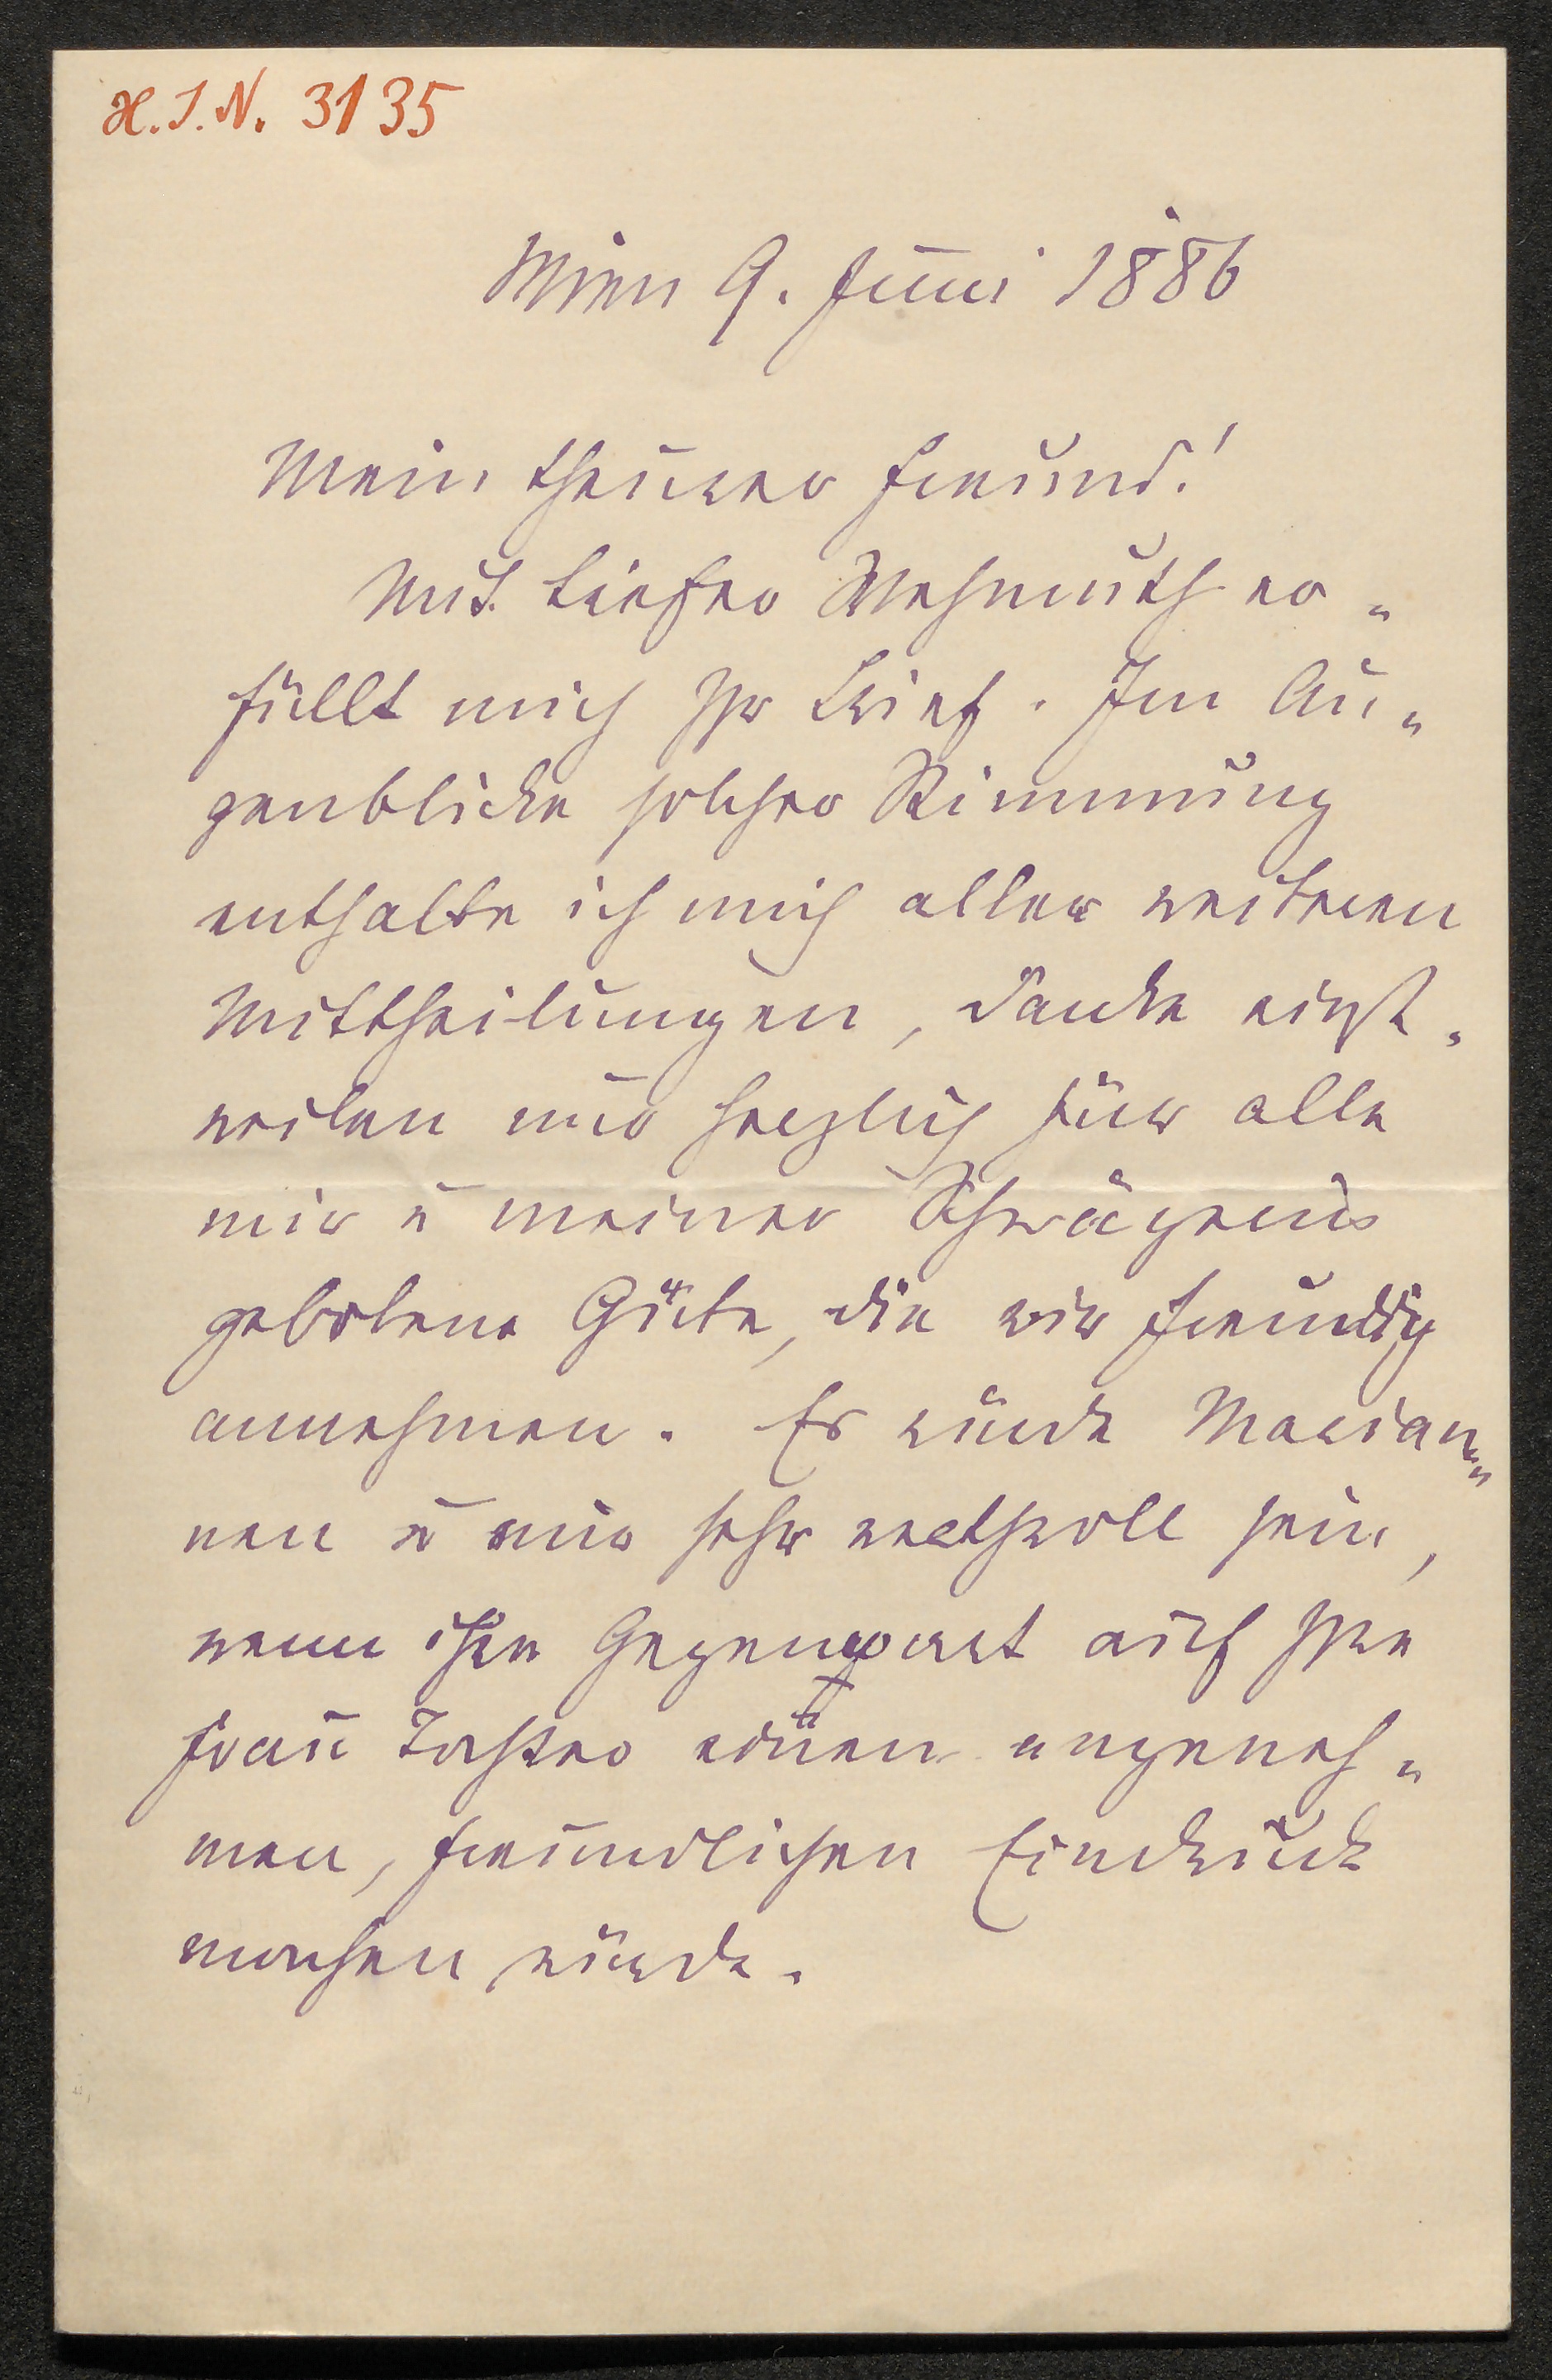 H.I.N. 3135
Wien 9. Juni 1886
Mein theurer Freund!
Mit tiefer Wehmuth er-
füllt mich Ihr Brief. Im Au-
genblicke solcher Stimmung
enthalte ich mich aller weiteren
Mittheilungen, danke einst-
weilen nur herzlich für alle
mir u meiner Schwägerin
gebotene Güte, die wir freudig
annehmen. Es würde Marian-
nen u mir sehr werthvoll sein,
wenn ihre Gegenwart auf Ihre
Frau Tochter einen angeneh-
men, freundlichen Eindruck
machen würde.